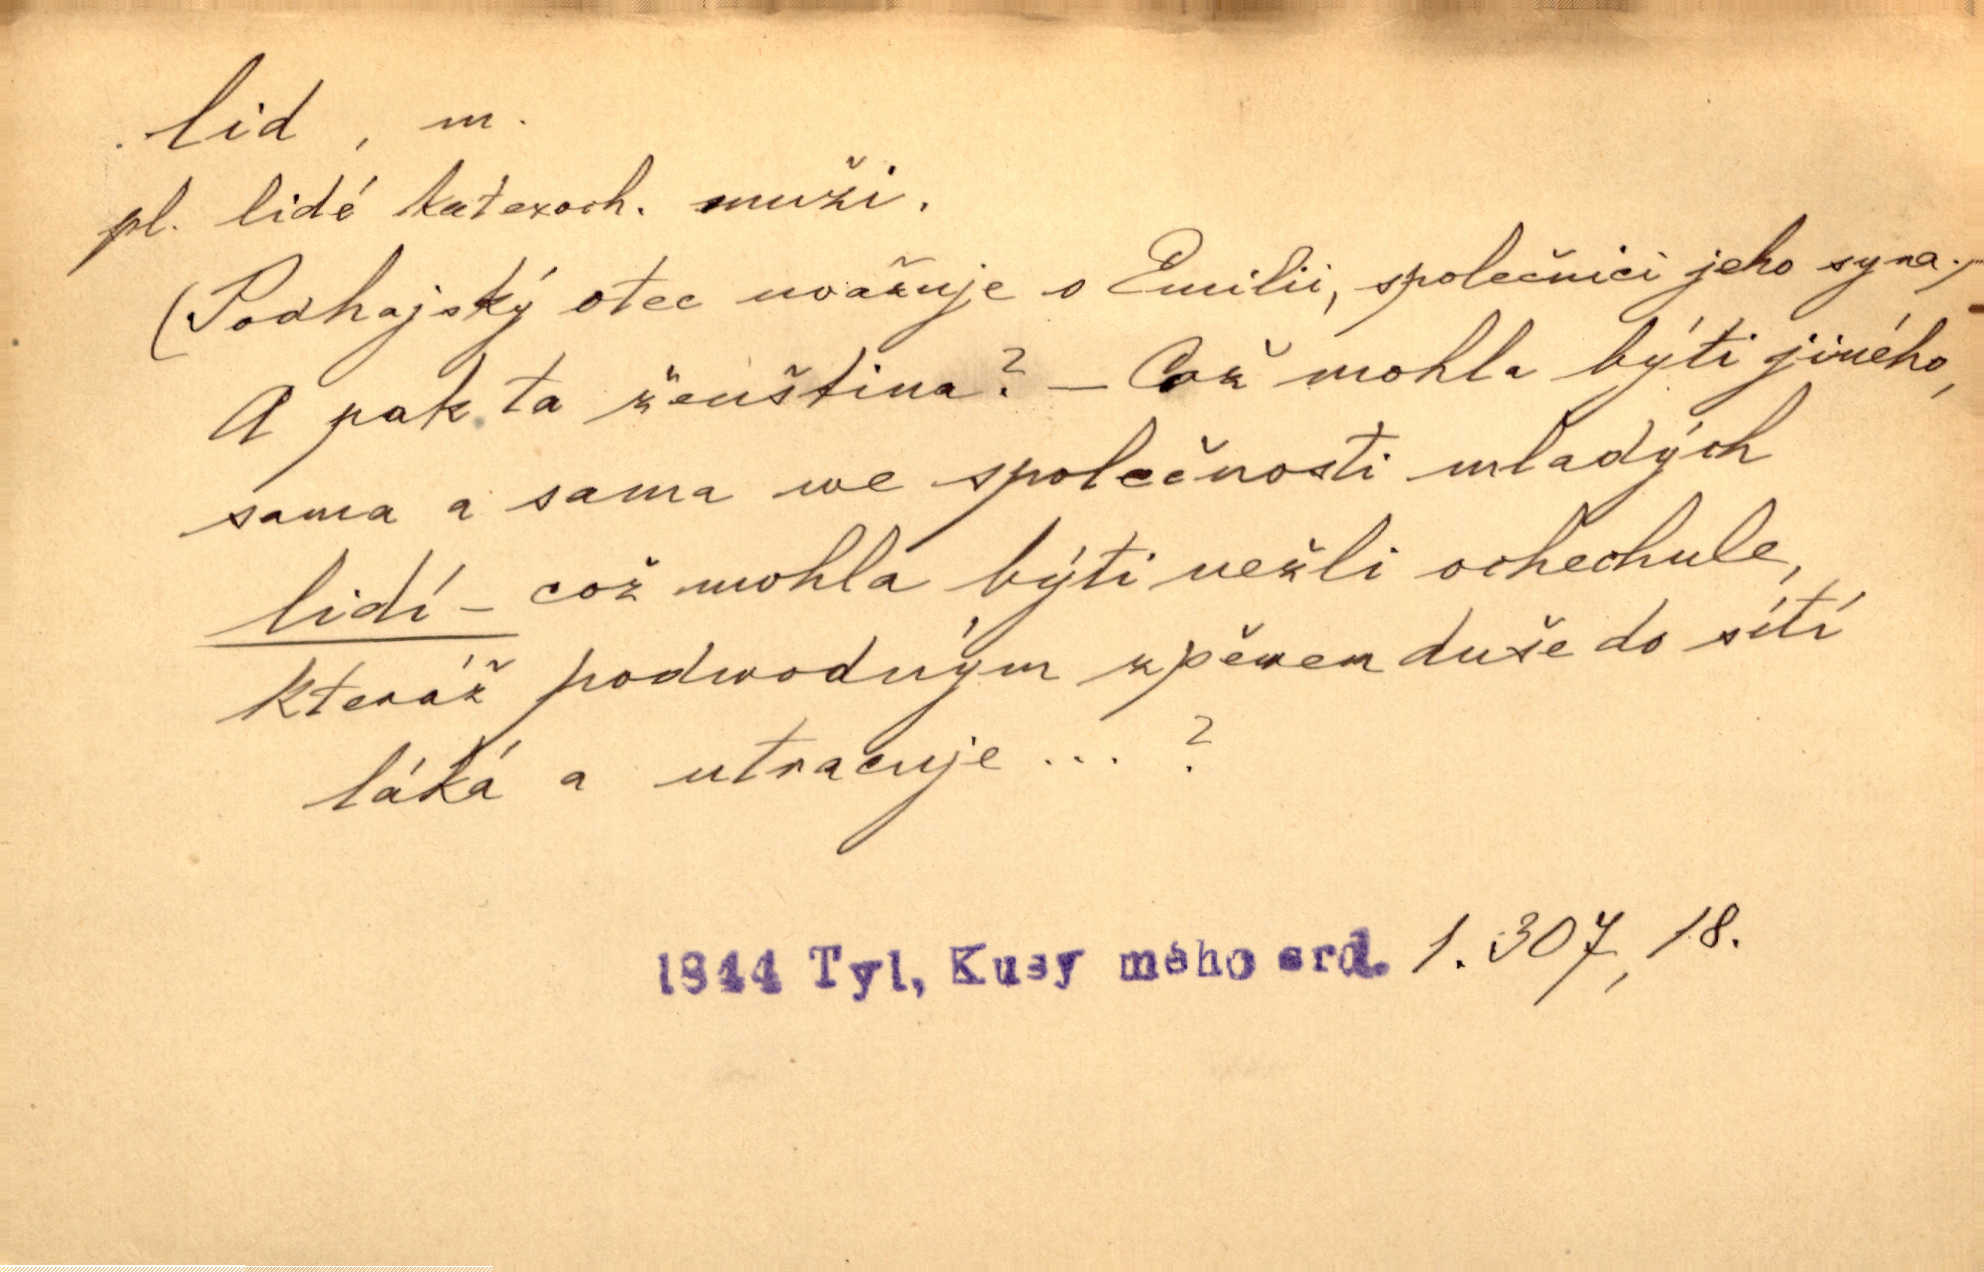 lid, m.
pl. lidé katexoch. muži.
(Podhajský otec uvažuje o Emilii, společnici jeho syna.)
A pak ta ženština? – Což mohla býti jiného,
sama a sama we společnosti mladých
lidí – což mohla býti nežli ochechule,
kteráž podwodným zpěwem duše do sítí
láká a utracuje ... ?
1844 Tyl, Kusy mého srd. 1. 307, 18.